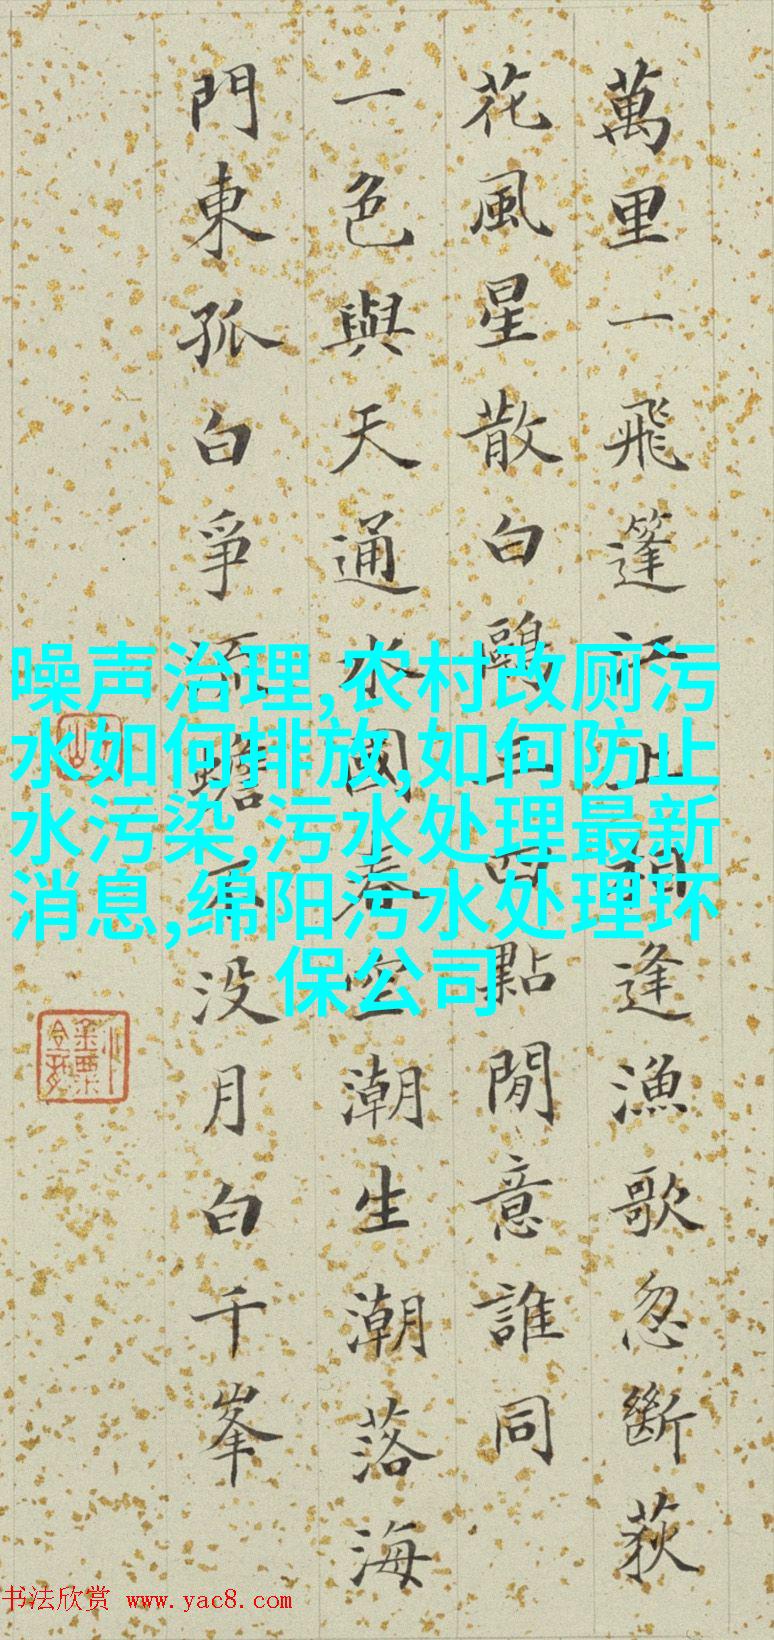 萬里一飛篷江上相逢漁歌忽斷荻
花風星散白鷗三四點閒意誰同
一色與天通水國春空潮生潮落海
門東孤白爭流蟾不没月白千峯
噪声治理,农村改厕污
水如何排放,如何防止
水污染,污水处理最新
消息,绵阳污水处理环
保公司
书法欣赏 www.yac8.com